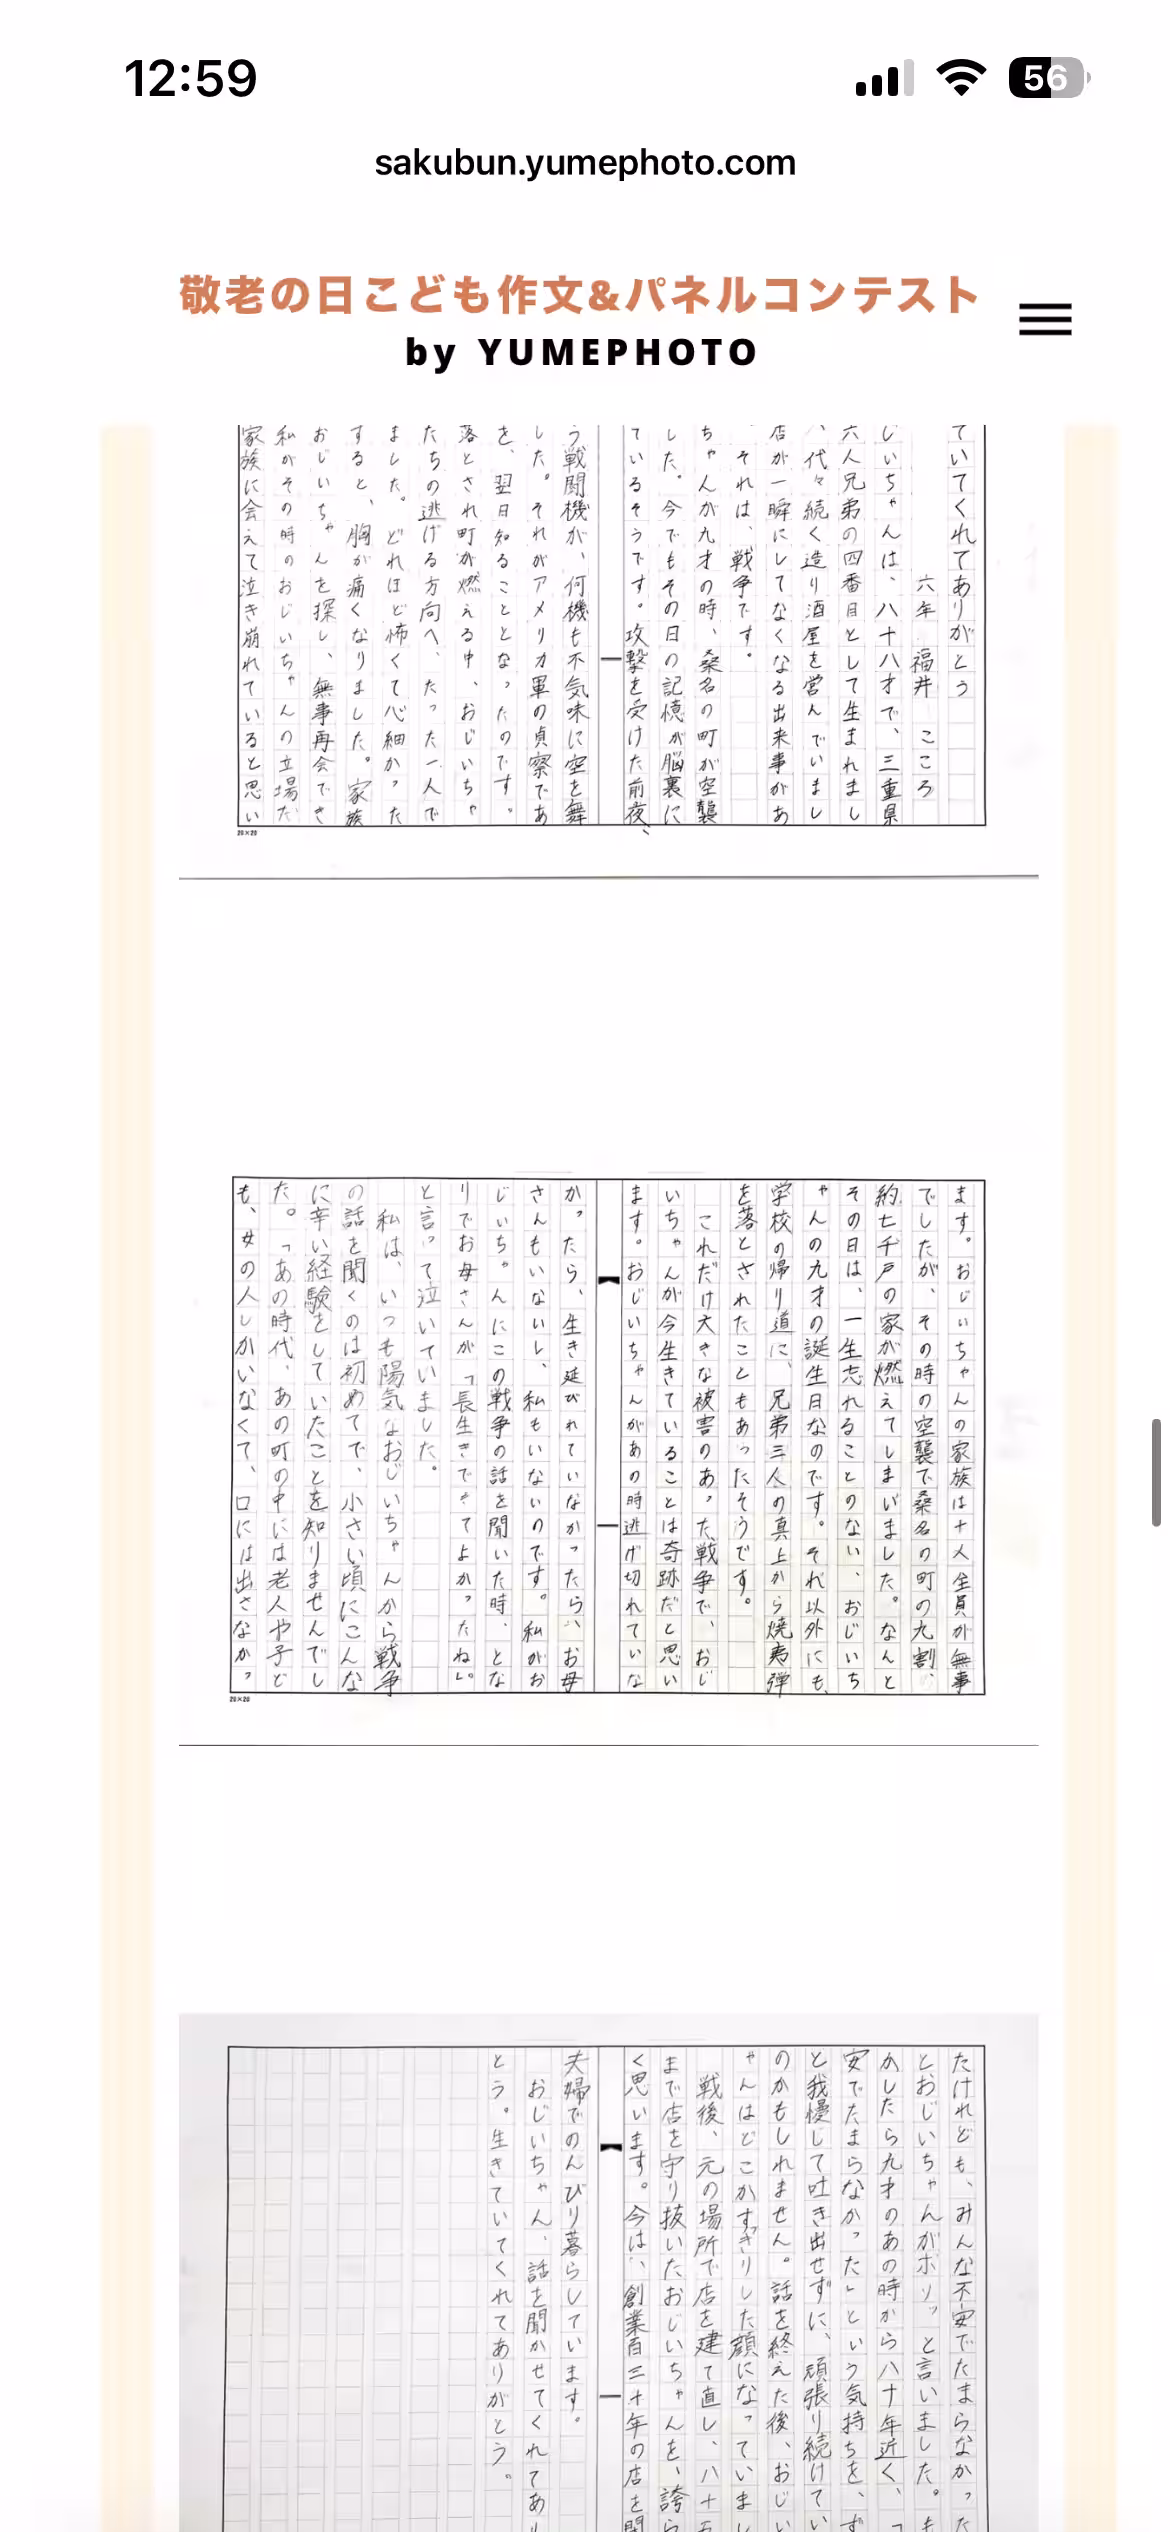 12:59
56
sakubun.yumephoto.com
敬老の日こども作文&パネルコンテスト
by YUMEPHOTO
ていてくれてありがとう
六年 福井 こころ
じいちゃんは、八十八才で、三重県
六人兄弟の四番目として生まれまし
、代々続く造り酒屋を営んでいまし
店が一瞬にしてなくなる出来事があ
それは、戦争です。
ちゃんが九才の時、桑名の町が空襲
した。今でもその日の記憶が脳裏に
ているそうです。攻撃を受けた前夜、
う戦闘機が、何機も不気味に空を舞
した。それがアメリカ軍の偵察であ
を、翌日知ることとなったのです。
落とされ町が燃える中、おじいちゃ
たちの逃げる方向へ、たった一人で
ました。どれほど怖くて心細かった
すると、胸が痛くなりました。家族
おじいちゃんを探し、無事再会でき
私がその時のおじいちゃんの立場だ
家族に会えて泣き崩れていると思い
20×20
ます。おじいちゃんの家族は十人全員が無事
でしたが、その時の空襲で桑名の町の九割、
約七千戸の家が燃えてしまいました。なんと
その日は、一生忘れることのない、おじいち
ゃんの九才の誕生日なのです。それ以外にも、
学校の帰り道に、兄弟三人の真上から焼夷弾
を落とされたこともあったそうです。
これだけ大きな被害のあった戦争で、おじ
いちゃんが今生きていることは奇跡だと思い
ます。おじいちゃんがあの時逃げ切れていな
かったら、生き延びれていなかったら、お母
さんもいないし、私もいないのです。私がお
じいちゃんにこの戦争の話を聞いた時、とな
りでお母さんが「長生きできてよかったね」。
と言って泣いていました。
私は、いつも陽気なおじいちゃんから戦争
の話を聞くのは初めてで、小さい頃にこんな
に辛い経験をしていたことを知りませんでし
た。「あの時代、あの町の中には老人や子ど
も、女の人しかいなくて、口には出さなかっ
20×20
たけれども、みんな不安でたまらなかった
とおじいちゃんがボソッと言いました。も
かしたら九才のあの時から八十年近く、「
安でたまらなかった」という気持ちを、ず
と我慢して吐き出せずに、頑張り続けてい
のかもしれません。話を終えた後、おじい
ゃんはどこかすっきりした顔になっていまし
戦後、元の場所で店を建て直し、八十五
まで店を守り抜いたおじいちゃんを、誇ら
く思います。今は、創業百三十年の店を閉
夫婦でのんびり暮らしています。
おじいちゃん、話を聞かせてくれてあり
とう。生きていてくれてありがとう。